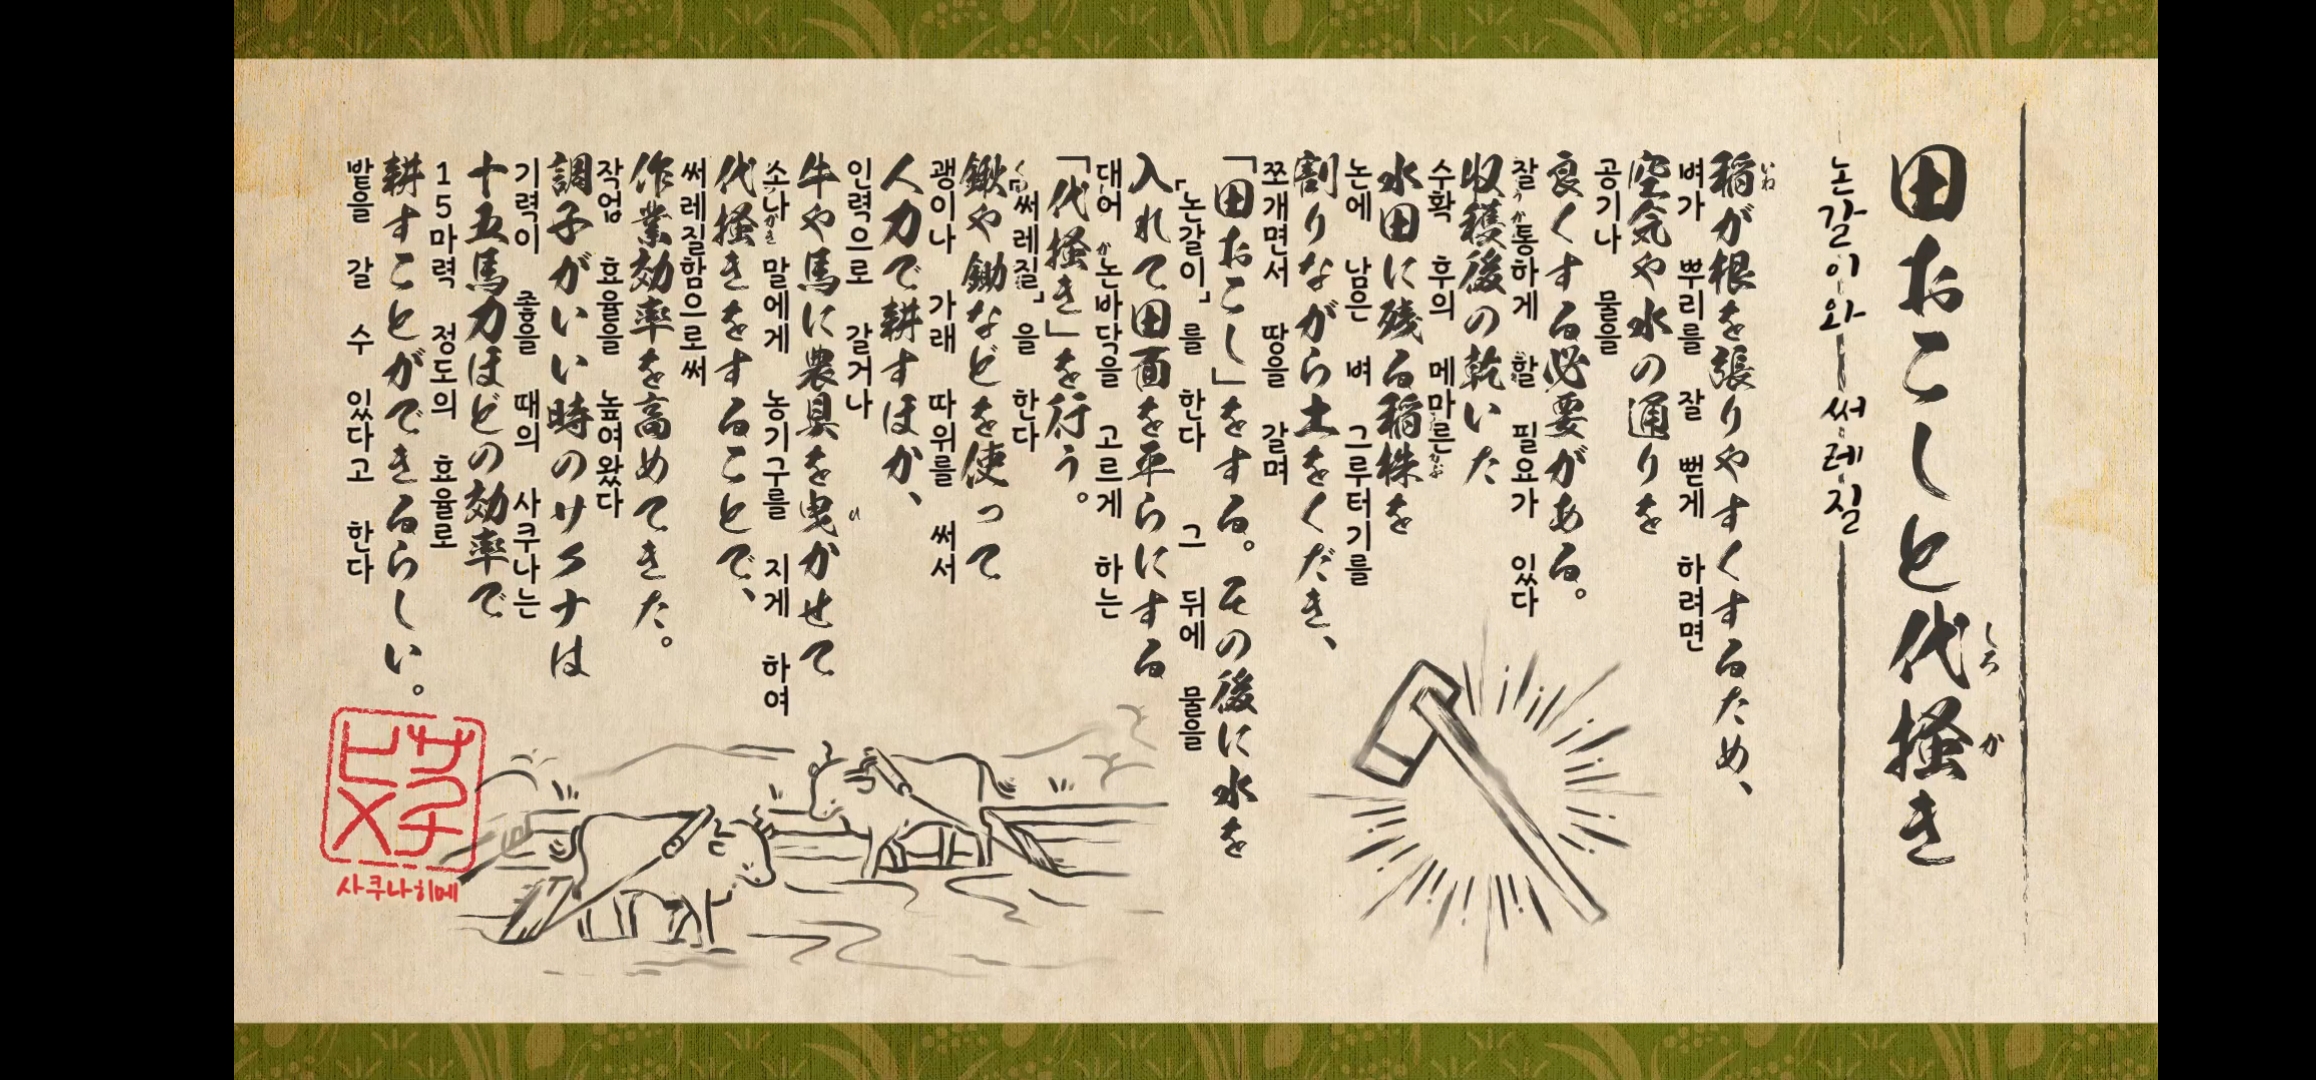 田おこしと代掻き
しろ
が
논갈이와 써레질
稲が根を張りやすくするため、
いね
벼가 뿌리를 잘 뻗게 하려면
空気や水の通りを
공기나 물을
良くする必要がある。
잘 통하게 할 필요가 있다
収穫後の乾いた
수확 후의 메마른
水田に残る稲株を
논에 남은 벼 그루터기를
割りながら土をくだき、
쪼개면서 땅을 갈며
「田おこし」をする。その後に水を
「논갈이」를 한다 그 뒤에 물을
入れて田面を平らにする
대어 논바닥을 고르게 하는
「代掻き」を行う。
「써레질」을 한다
鍬や鋤などを使って
괭이나 가래 따위를 써서
人力で耕すほか、
인력으로 갈거나
牛や馬に農具を曳かせて
소나 말에게 농기구를 지게 하여
代掻きをすることで、
써레질함으로써
作業効率を高めてきた。
작업 효율을 높여왔다
調子がいい時のサクナは
기력이 좋을 때의 사쿠나는
十五馬力ほどの効率で
15마력 정도의 효율로
耕すことができるらしい。
밭을 갈 수 있다고 한다
サクナヒメ
사쿠나히메